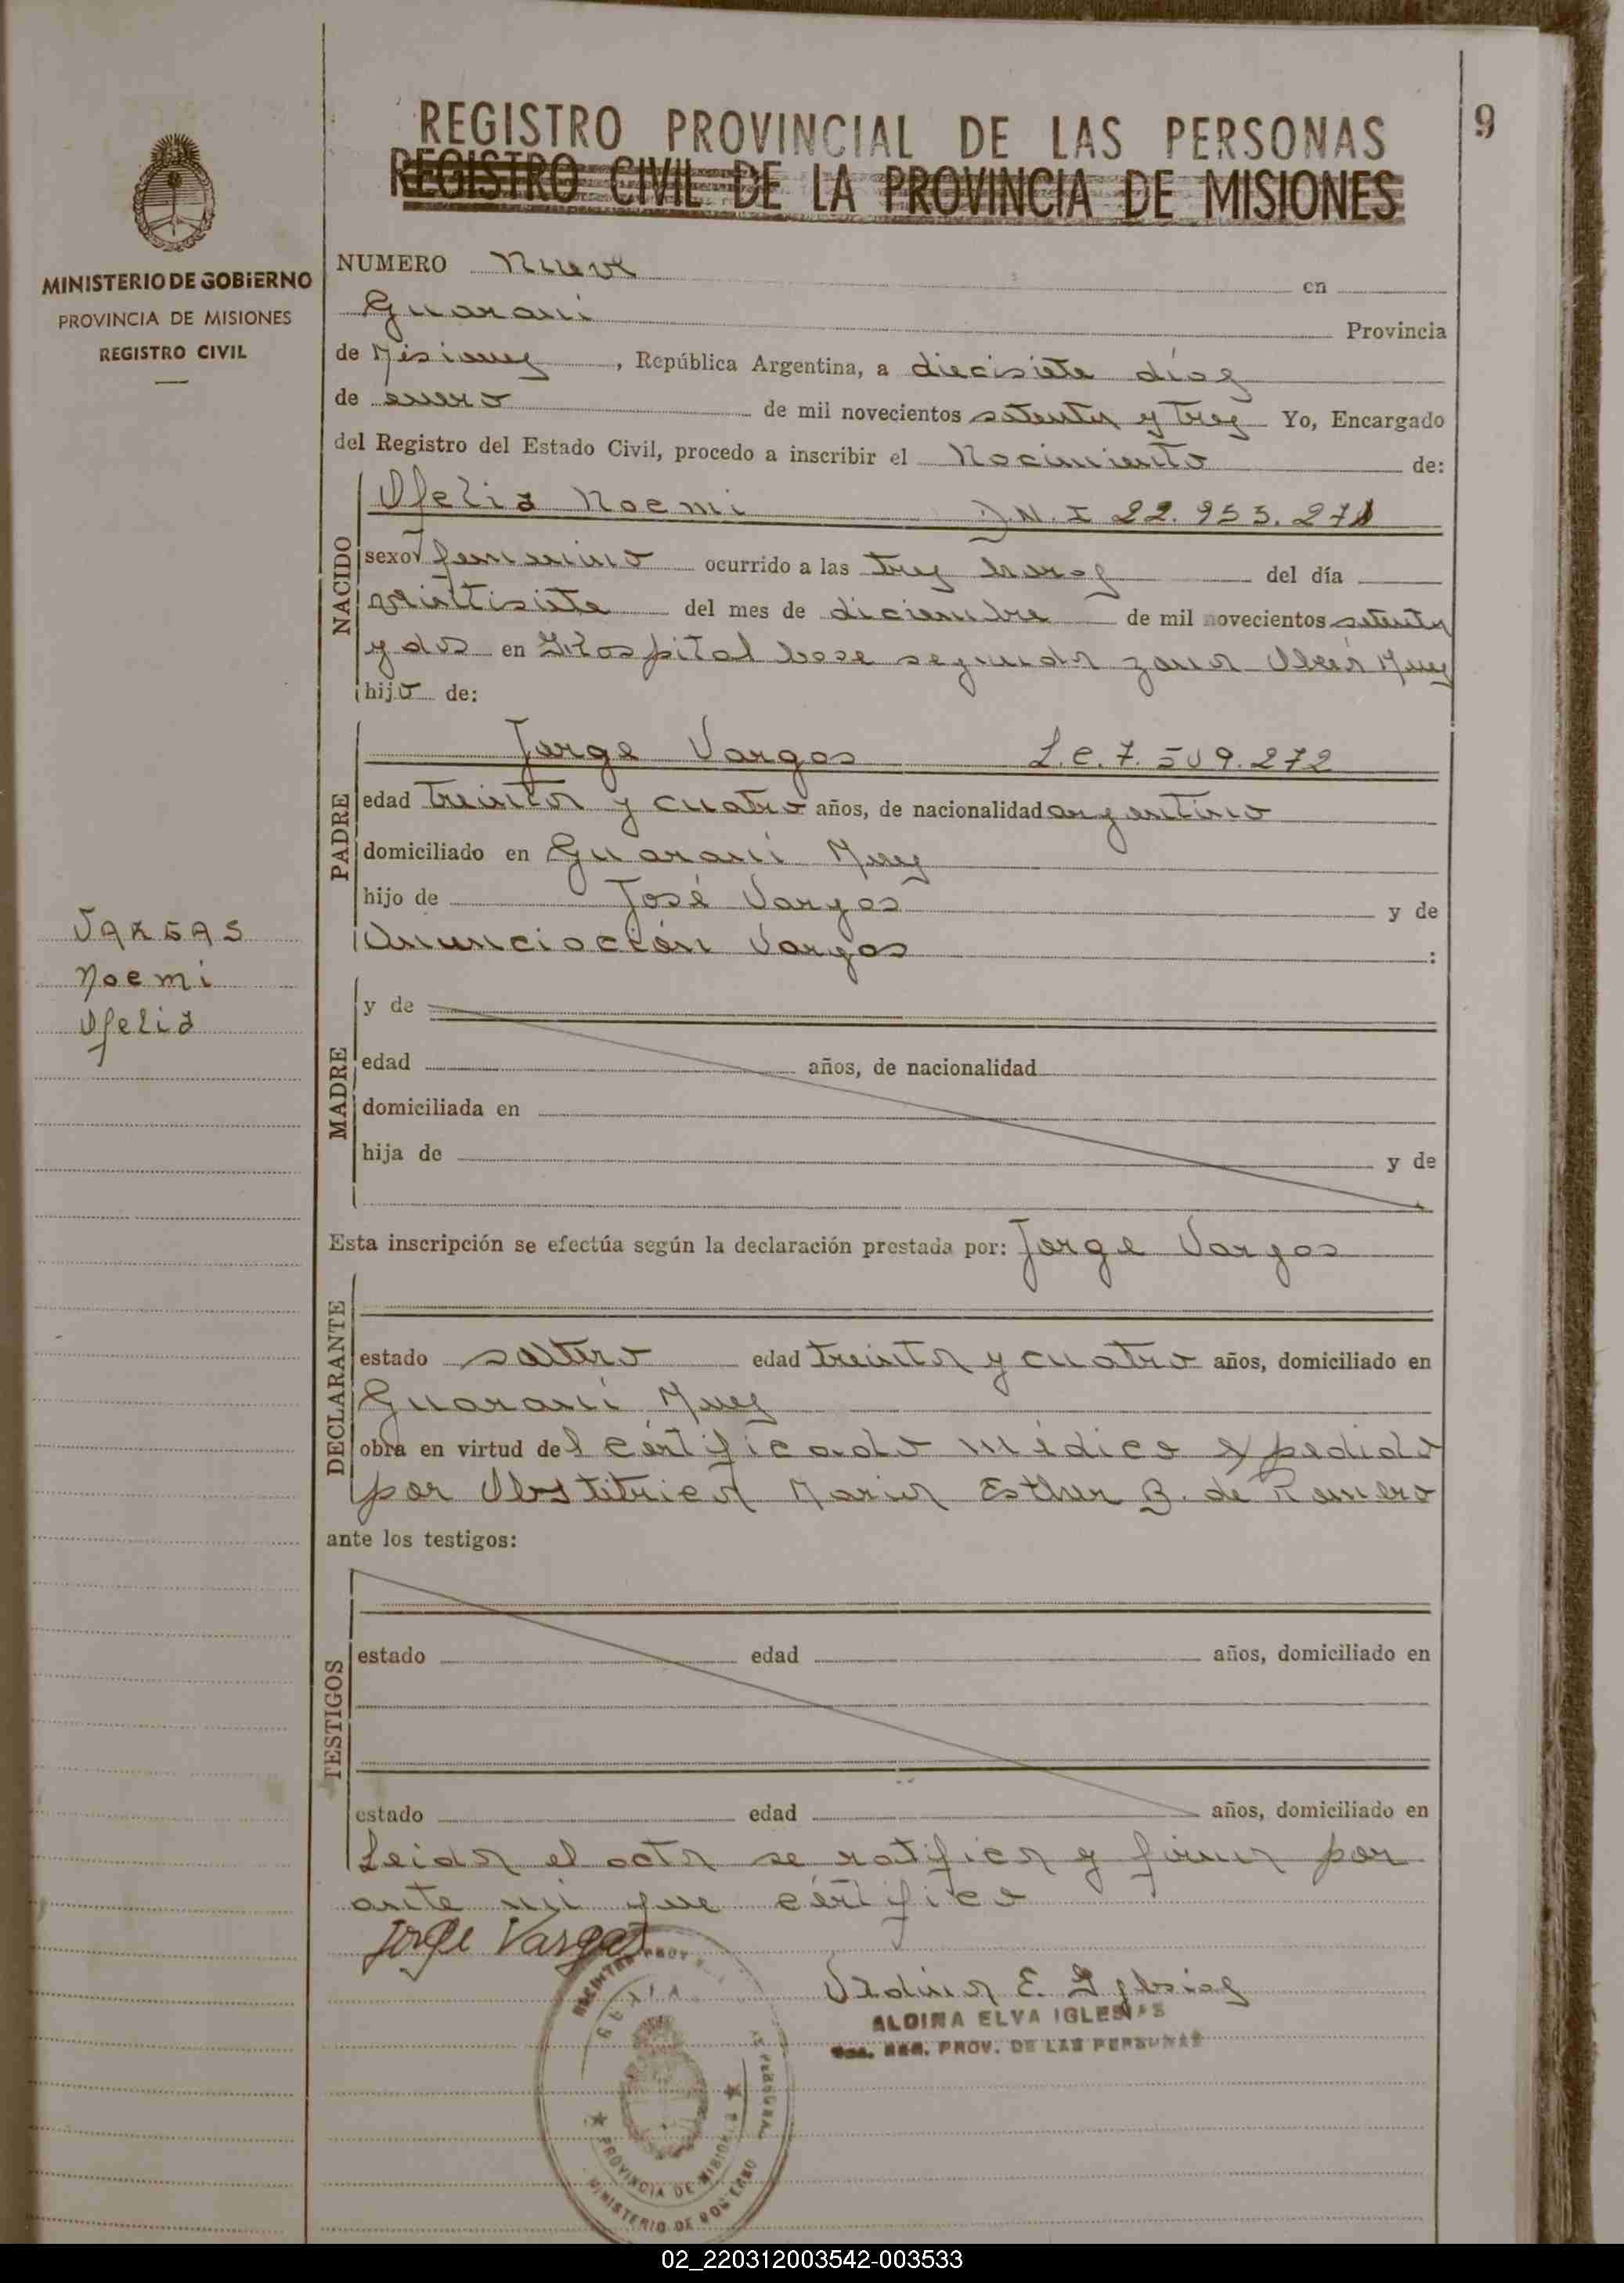 REGISTRO PROVINCIAL DE LAS PERSONAS
REGISTRO CIVIL DE LA PROVINCIA DE MISIONES
9
MINISTERIO DE GOBIERNO
PROVINCIA DE MISIONES
REGISTRO CIVIL
NUMERO Nueve en
Guarani Provincia
de Misiones, República Argentina, a diecisiete días
de enero de mil novecientos setenta y tres Yo, Encargado
del Registro del Estado Civil, procedo a inscribir el Nacimiento de:
NACIDO
Ofelia Noemi D.N.I 22.953.271
sexo femenino ocurrido a las tres horas del día
veintisiete del mes de diciembre de mil novecientos setenta
y dos en Hospital base segunda zona Oberá Mnes
hijo de:
PADRE
Jorge Vargas L.E.7.509.272
edad treinta y cuatro años, de nacionalidad argentino
domiciliado en Guaraní Mnes
hijo de José Vargas y de
Anunciación Vargas :
VARGAS
Noemi
Ofelia
MADRE
y de
edad años, de nacionalidad
domiciliada en
hija de y de
Esta inscripción se efectúa según la declaración prestada por: Jorge Vargas
DECLARANTE
estado soltero edad treinta y cuatro años, domiciliado en
Guaraní Mnes
obra en virtud del certificado médico expedido
por Obstétrica Maria Esther B. de
ante los testigos:
TESTIGOS
estado edad años, domiciliado en
estado edad años, domiciliado en
Leida el acta se ratifica y firma por
ante mi que certifico
Jorge Vargas
Aldina E. Iglesias
ALDINA ELVA IGLESIAS
REG. PROV. DE LAS PERSONAS
PROVINCIA DE MISIONES
MINISTERIO DE GOBIERNO
02_220312003542-003533